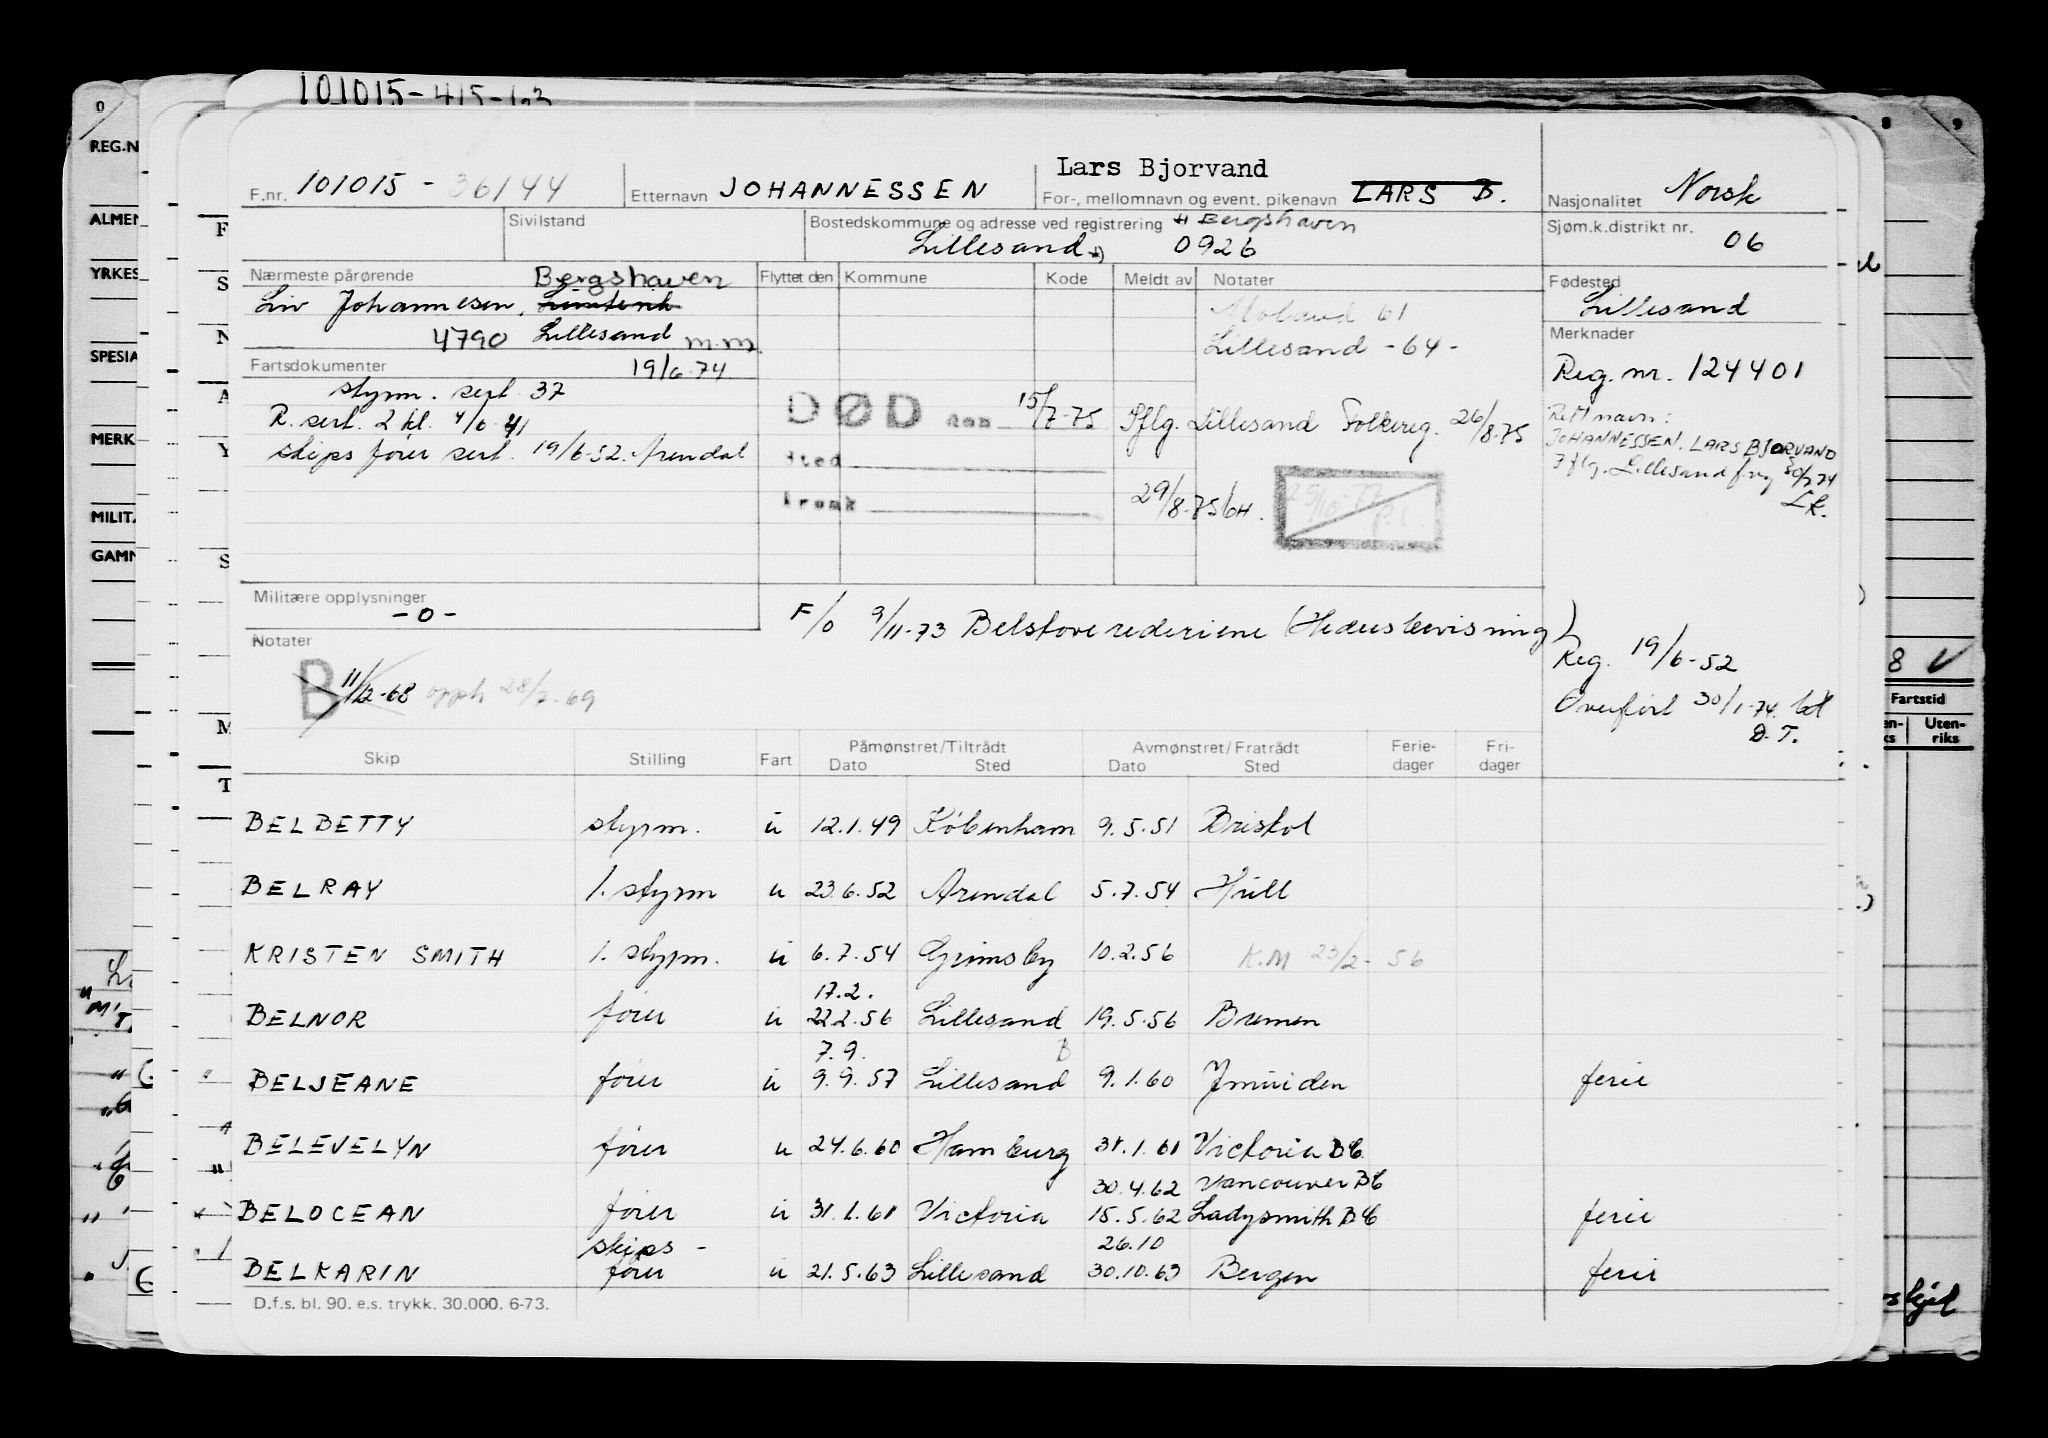 101015-
REG.N
ALMEN
YRKES
SPESIA
MERK
MILITA
GAMN
8 9
Lars Bjorvand
F.nr. 101015 - 36144
Etternavn JOHANNESSEN
For-, mellomnavn og event. pikenavn LARS B.
Nasjonalitet Norsk
Sivilstand
Bostedskommune og adresse ved registrering *) Bergshaven
Lillesand *) 0926
Sjøm.k.distrikt nr. 06
Nærmeste pårørende Bergshaven
Liv Johannesen,
4790 Lillesand m.m.
Flyttet den Kommune Kode Meldt av Notater
Moland 61
Lillesand - 64 -
Fødested
Lillesand
Merknader
Reg. nr. 124401
Rett navn:
JOHANNESSEN. LARS BJORVAND
Iflg. Lillesand f.reg 30/7 74
LK.
Fartsdokumenter 19/6-74
styrm. sert. 37
R. sert. 2 kl. 4/6-41
skips fører sert. 19/6-52. Arendal
DØD den 15/7-75
Sted
Årsak
Iflg. Lillesand Folkereg. 26/8-75
29/8-75 bH.
Militære opplysninger
- 0 -
F/O 9/11-73 Belskove rederiene (Hedersbevisning)
Notater
B 11/12-68 opph 28/7-69
Reg. 19/6-52
Overført 30/1-74.
D.T.
8 V
Fartstid
Uten-
riks
Skip Stilling Fart Påmønstret/Tiltrådt Avmønstret/Fratrådt Ferie- Fri-
Dato Sted Dato Sted dager dager
BELBETTY styrm. u 12.1.49 København 9.5.51 Bristol
BELRAY 1. styrm u 23.6.52 Arendal 5.7.54 Hull
KRISTEN SMITH 1. styrm. u 6.7.54 Grimsby 10.2.56 K.M 23/2-56
17.2.
BELNOR fører u 22.2.56 Lillesand 19.5.56 Bremen
7.9. B
BELJEANE fører u 9.9.57 Lillesand 9.1.60 Jmuiden ferie
BELEVELYN fører u 24.6.60 Hamburg 31.1.61 Victoria BC
30.4.62 Vancouver BC
BELOCEAN fører u 31.1.61 Victoria 15.5.62 Ladysmith BC ferie
skips - 26.10
BELKARIN fører u 21.5.63 Lillesand 30.10.63 Bergen ferie
D.f.s. bl. 90. e.s. trykk. 30.000. 6-73.